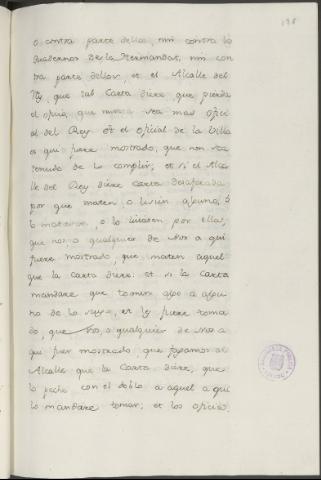 o contra parte dellos, nin contra lo
quadernos de la Hermandat, nin con
tra parte dellos, et el Alcalle del
Rey, que tal Carta diere, que pierda
el oficio, que nunca sea mas ofici
al del Rey et el oficial de la Villa
a qui fuere mostrado, que non sea
tenudo de lo complir, et si el Alca
lle del Rey diere Carta desaforada
por que maten, o lisien alguno, o
lo mataren, o lo lisiaren por ellas,
que nos o qualquier de Nos a qui
fuere mostrado, que maten aquel
que la Carta diere: et si la Carta
mandare que tomen algo a algu
no de lo suyo, et ly fuere toma
do, que Nos, o qualquier de Nos a
qui fuer mostrado, que fagamos al
Alcalle que la Carta diere, que
lo peche con el doblo a aquel a qui
lo mandare tomar: et los oficia